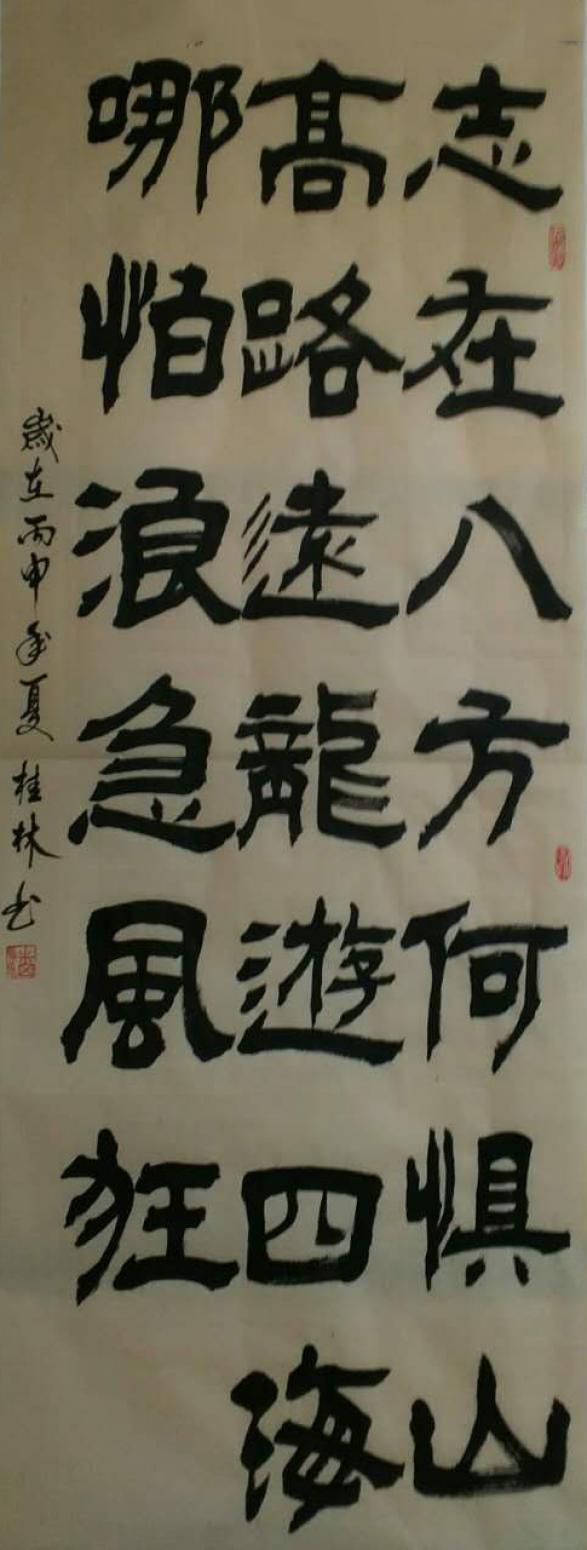 志在八方何惧山
高路遠龍遊四海
哪怕浪急風狂
歲在丙申年夏桂林书